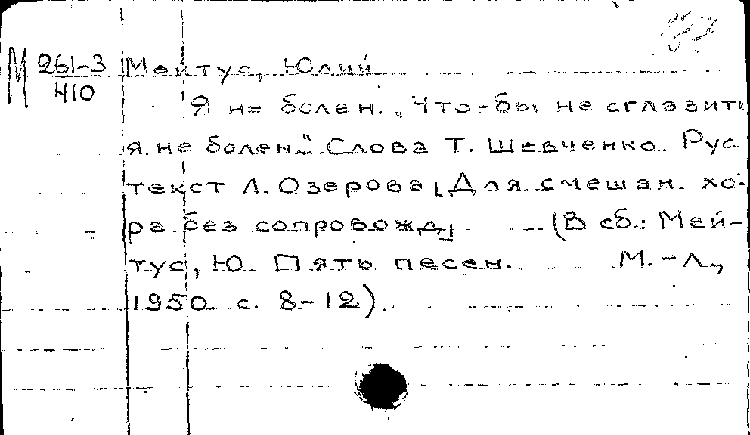 М 261-3 Мейтус, Юлий
410
Я не болен. „Что-бы не сглазить
я не болен." Слова Т. Шевченко. Рус
текст Л. Озерова [Для смешан. хо-
ра без сопровожд] (В сб.: Мей-
тус, Ю. Пять песен. М.-Л.,
1950 с. 8-12).